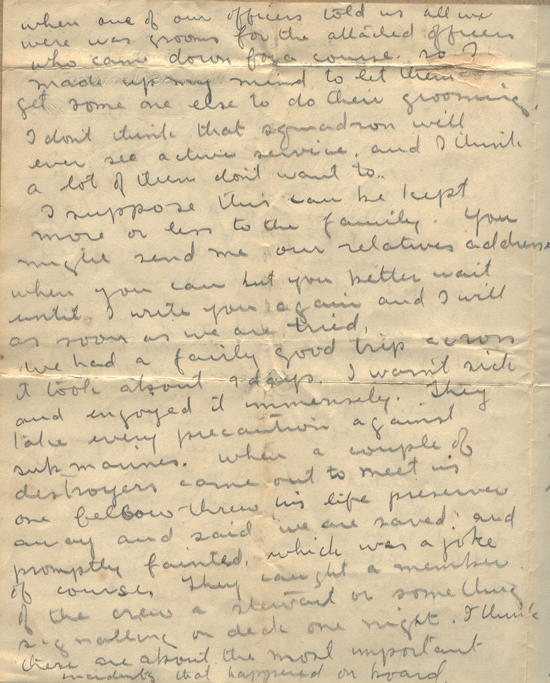 when one of our officers told us all we
were was grooms for the attached officers
who came down for a course. so I
made up my mind to let them
get some one else to do their grooming.
I dont think that squadron will
ever see active service, and I think
a lot of them don't want to..
I suppose this can be kept
more or less to the family. You
might send me our relatives addresse
when you can but you better wait
until I write you again and I will
as soon as we are tried.
We had a fairly good trip across
it took about 9 days. I wasn't sick
and enjoyed it immensely. They
take every precaution against
submarines. When a couple of
destroyers came out to meet us
one fellow threw his life preserver
away and said "we are saved" and
promptly fainted, which was a joke
of course. They caught a member
of the crew a stewart or something
signalling on deck one night. I think
these are about the most important
incidents that happened on board